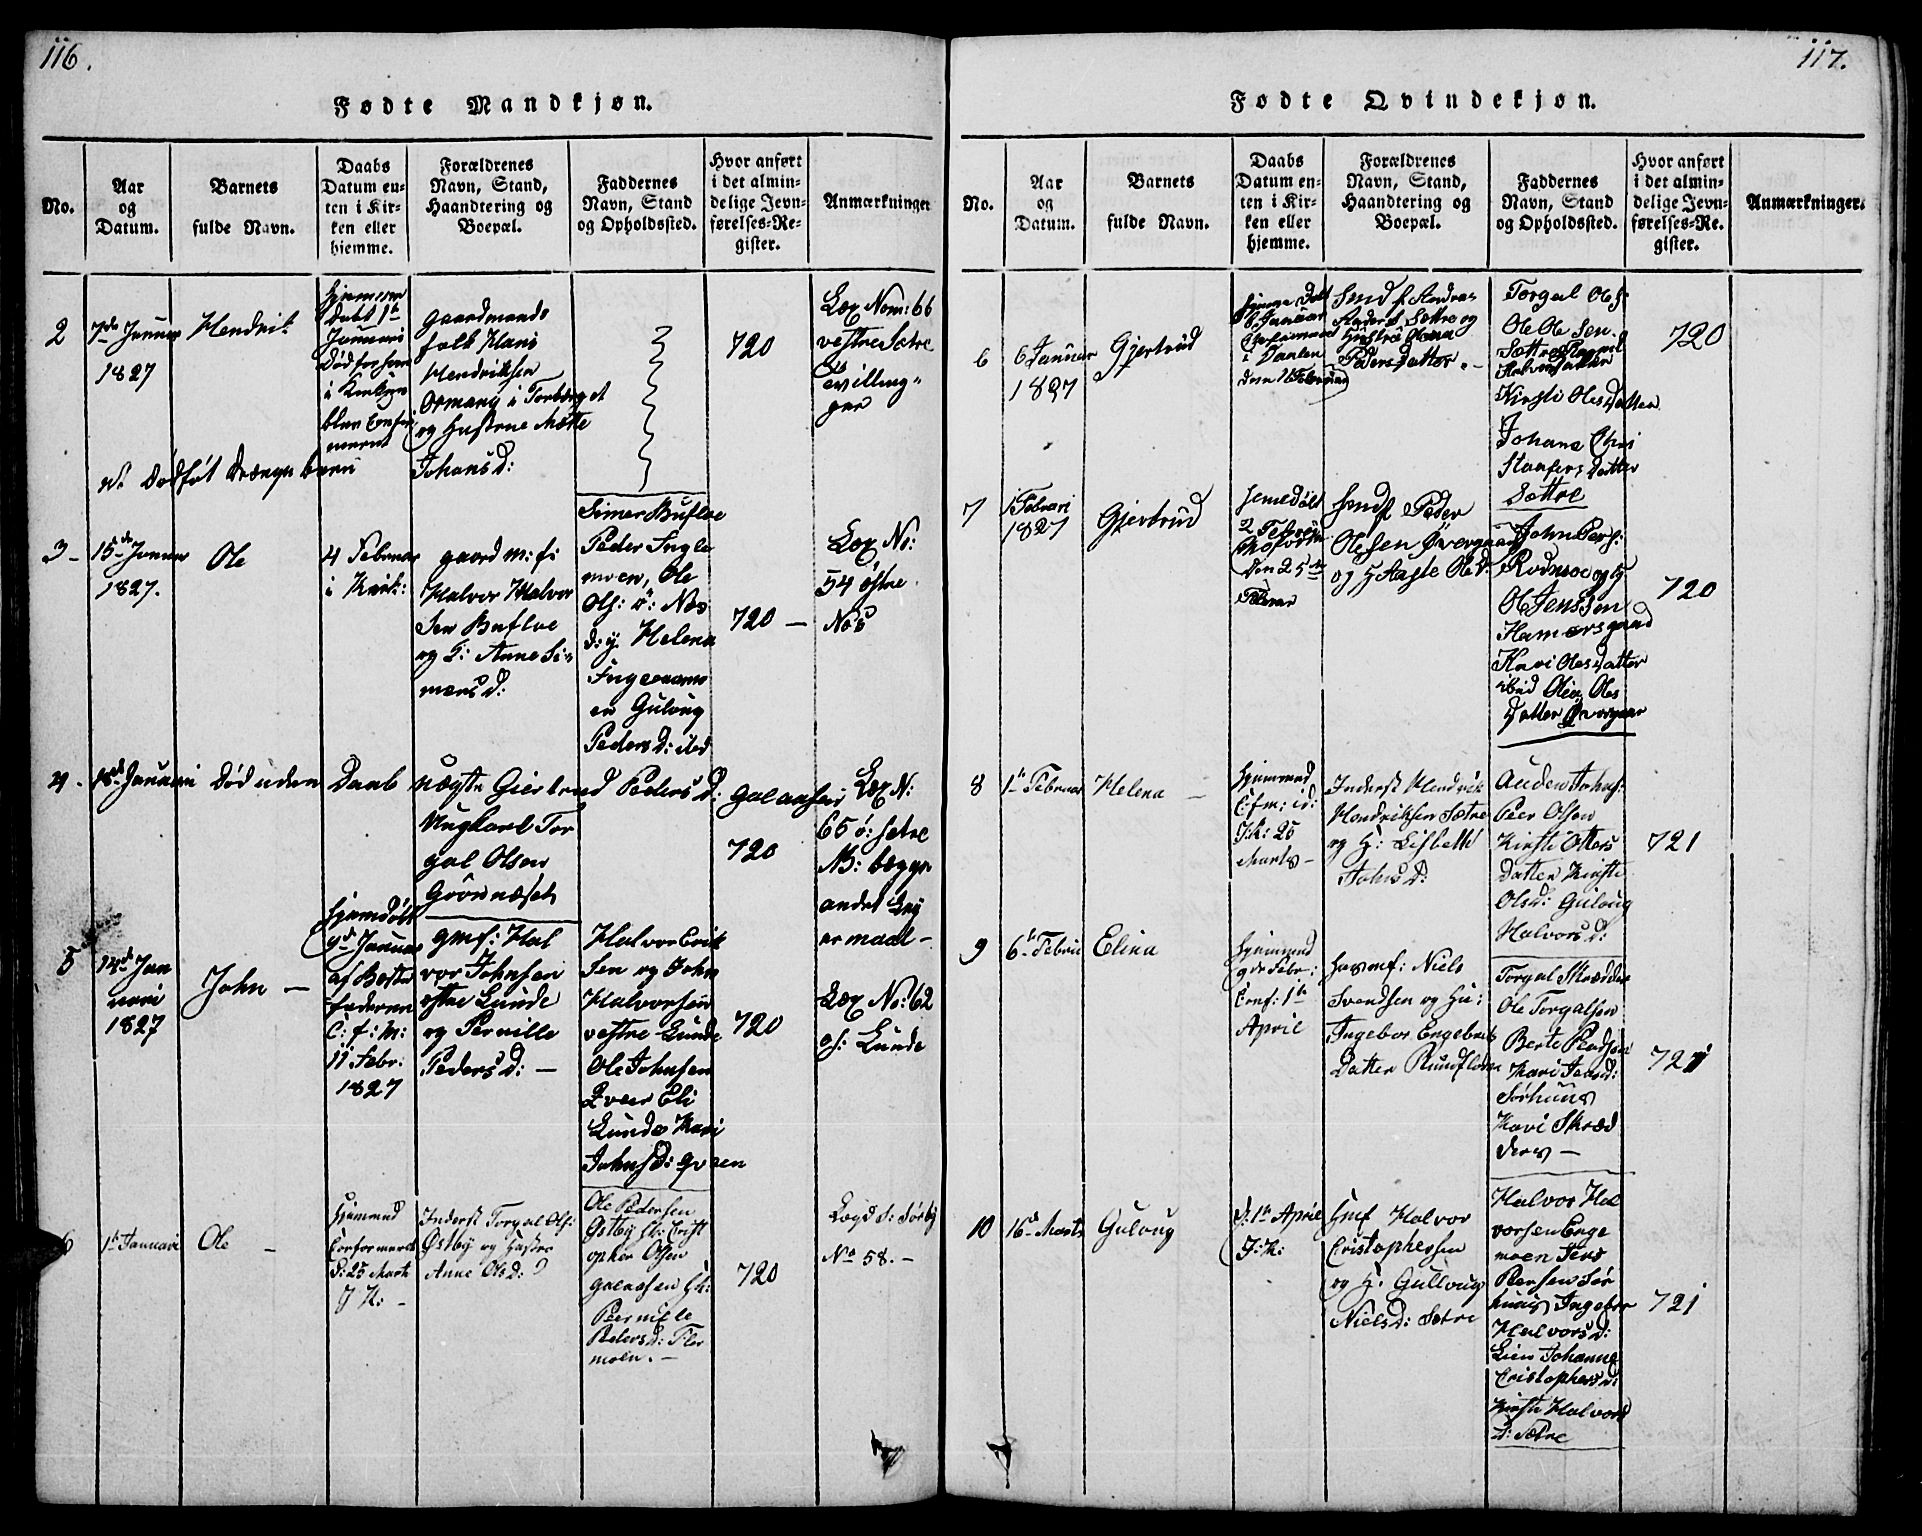 116.
Fødte Mandkjøn.
No.
Aar
og
Datum.
Barnets
fulde Navn.
Daabs
Datum en-
ten i Kir-
ken eller
hjemme.
Forældrenes
Navn, Stand,
Haandtering og
Boepæl.
Faddernes
Navn, Stand
og Opholdssted.
Hvor anført
i det almin-
delige Jevn-
førelses-Re-
gister.
Anmærkninger
2
7de Januar
1827
Hendrik
Januari
i Kirken
gaardmands
folk Hans
Hendriksen
i Torberget
og Hustrue Mette
Johans D:
720
Lax Nom: 66
vestre Sætre
Tvillin-
ger
3-
15de Januar
1827.
Ole
4 Februar
i Kirk:
gaard m: f:
Halvor Halvor
sen Bufloe
og H: Anne Si-
mens D:
Simen Bufloe
Peder Ingle
moen, Ole
Ols: ø: Nes
d: y. Helena
en Guloug
Peders D: ibid
720 —
Lax No:
54 østre
Nes
4.
18de Januari
Død uden Daab
uægte Giertrud Peders D: Galaasen
Ungkarl Tor
gal Olsen
Grønnæset
720
Lax N:
65 ø: Sætre
N: begges
andet Ley
ermaal -
5
14de Jan
uari
1827
John —
hjemdøbt
Januar
C: f: M:
11 Febr:
1827
gmf: Hal
vor Johnsen
østre Lunde
og Pernille
Peders D: —
Halvor Erik
sen og John
Halvorsen
vestre Lunde
Ole Johnsen
Eli
Lunde Kari
Johns D:
720
Lax No: 62
øs: Lunde
6
1te Januari
Ole —
D: 25 Marti
J K: -
Inderst Torgal Ols:
Østby og Hustru
Anne Ols D:
Ole Pedersen
Østby Crist
opher Olsen
Galaasen
Pernille
Peders D: Flor
moen. —
720
Lægd S: Sørby
No 58. -
117.
Fødte Qvindekjøn.
No.
Aar
og
Datum.
Barnets
fulde Navn.
Daabs
Datum en-
ten i Kir-
ken eller
hjemme.
Forældrenes
Navn, Stand,
Haandtering og
Boepæl.
Faddernes
Navn, Stand
og Opholdssted.
Hvor anført
i det almin-
delige Jevn-
førelses-Re-
gister.
Anmærkninger.
6
6 Januar
1827
Gjertrud
Sætre og
Hustrue
Peders datter. -
Torgal Ols:
Ole Olesen
Sættre
Halvorsdatter
Kirsti Olesdatter
Johana Chri
stoffers Datter
Sættre
720
7
1 Febrari
1827
Gjertrud
den 25de
Februar
Peder
Olesen Øvergaard
og H Aaste Ole D:
John Pers:
Rodmoe og
Ol Jenssen
Hamersgaard
Kari Olesdatter
ibid Olea Oles
Datter Øvergaar
720
8
1te Februar
Helena —
C: f m: id:
J: K: 25
Marts -
Inderst Hendrik
Hendriksen Sætre
og H: Lisbette
Johns D:
Auden Johns:
Peer Olsen
Kirsti Otters
datter Kirsti
Ols D: Guloug
Halvors D:
721
9
6te Febru
Elina
hjemmed
9de Febr:
Conf: 1te
April
Niels
Svendsen og Hu:
Ingebor Engebrets
Datter Rundfloen
Torgal Skrædder
Ole Torgalsen
Berte
Kari
Sørhuus
Kari Skræd
ders —
721
10
16de Marts
Guloug
D: 1te April
J: K:
Gmf Halvor
Cristophersen
og H. Gulloug
Niels D: Sætre
Halvor Hal
vorsen Enge
moen Jens
Persen Sør
huus Ingebor
Halvors D:
Lien Johanne
Cristophers D:
Kirsti Halvors
D: Sætre
721